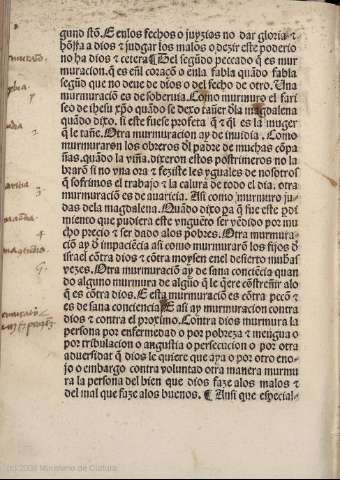 gund stõ. E enlos fechos o juyzios no dar gloria ⁊
hõrra a dios ⁊ judgar los malos o dezir este poderio
no ha dios ⁊ cetera ¶ Del segũdo peccado q̃ es mur
muracion. q̃ es enl̃ coraçõ o enla fabla quãdo fabla
segũd que no deue de dios o del fecho de otro. Una
murmuraciõ es de soberuia. Como murmuro el fari
seo de ihesu xp̃o quãdo se dexo tañer dla magdalena
quãdo dixo. si este fuese profeta q̃ ⁊ q̃l es la muger
q̃ le tañe. Otra murmuracion ay de inuidia. Como
murmuraron los obreros dl̃ padre de muchas cõpa
ñas. quãdo la viña. dixeron estos postrimeros no la
brarõ si no vna ora ⁊ feziste les yguales de nosotros
q̃ sofrimos el trabajo ⁊ la calura de todo el dia. otra
murmuraciõ es de auaricia. Asi como murmuro ju-
das dela magdalena. Quãdo dixo pa q̃ fue este pdi
miento que pudiera este vngueto ser vẽdido por mu
cho precio ⁊ ser dado alos pobres. Otra murmura-
ciõ ay d̃ impaciẽcia asi como murmurarõ los fijos d̃
israel cõtra dios ⁊ cõtra moysen enel desierto muchas
vezes. Otra murmuraciõ ay de sana conciẽcia quan
do alguno murmura de algũo q̃ le q̃ere cõstreñir alo
q̃ es cõtra dios. E esta murmuraciõ es cõtra pecõ ⁊
es de sana conciencia. E asi ay murmuracion contra
dios ⁊ contra el proximo. Contra dios murmura la
persona por enfermedad o por pobreza ⁊ mengua o
por tribulacion o angustia o persecucion o por otra
aduersidat q̃ dios le quiere que aya o por otro eno-
jo o embargo contra voluntad otra manera murmu
ra la persona del bien que dios faze alos malos ⁊
del mal que faze alos buenos. ¶ Ansi que especial-
(c) 2006 Ministerio de Cultura